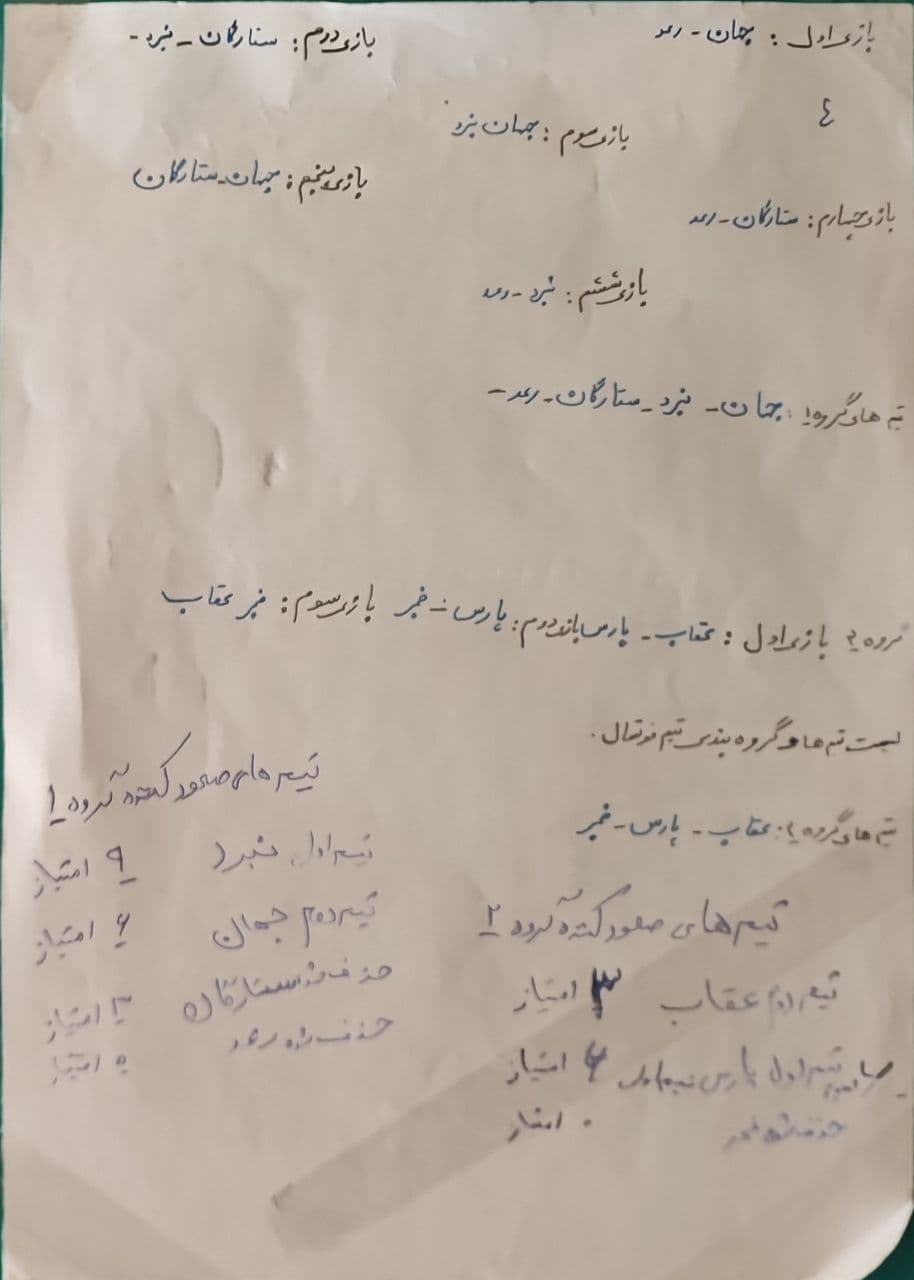 بازی اول : جهان - رعد
بازی دوم : ستارگان - نبرد -
۴
بازی سوم : جهان نبرد
بازی پنجم : جهان - ستارگان
بازی چهارم : ستارگان - رعد
بازی ششم : نبرد - رعد
تیم های گروه ۱ : جهان - نبرد - ستارگان - رعد -
گروه ۲ بازی اول : عقاب - پارس بازی دوم : پارس - خیبر بازی سوم : خیبر عقاب
لیست تیم ها و گروه بندی تیم فوتسال .
تیم های گروه ۲ : عقاب - پارس - خیبر
تیم های صعود کننده گروه ۱
تیم اول نبرد ۹ امتیاز
تیم دوم جهان ۶ امتیاز
حذف شده ستارگان ۳ امتیاز
حذف شده رعد ۰ امتیاز
تیم های صعود کننده گروه ۲
تیم دوم عقاب ۳ امتیاز
تیم اول پارس ۶ امتیاز
حذف شده خیبر ۰ امتیاز